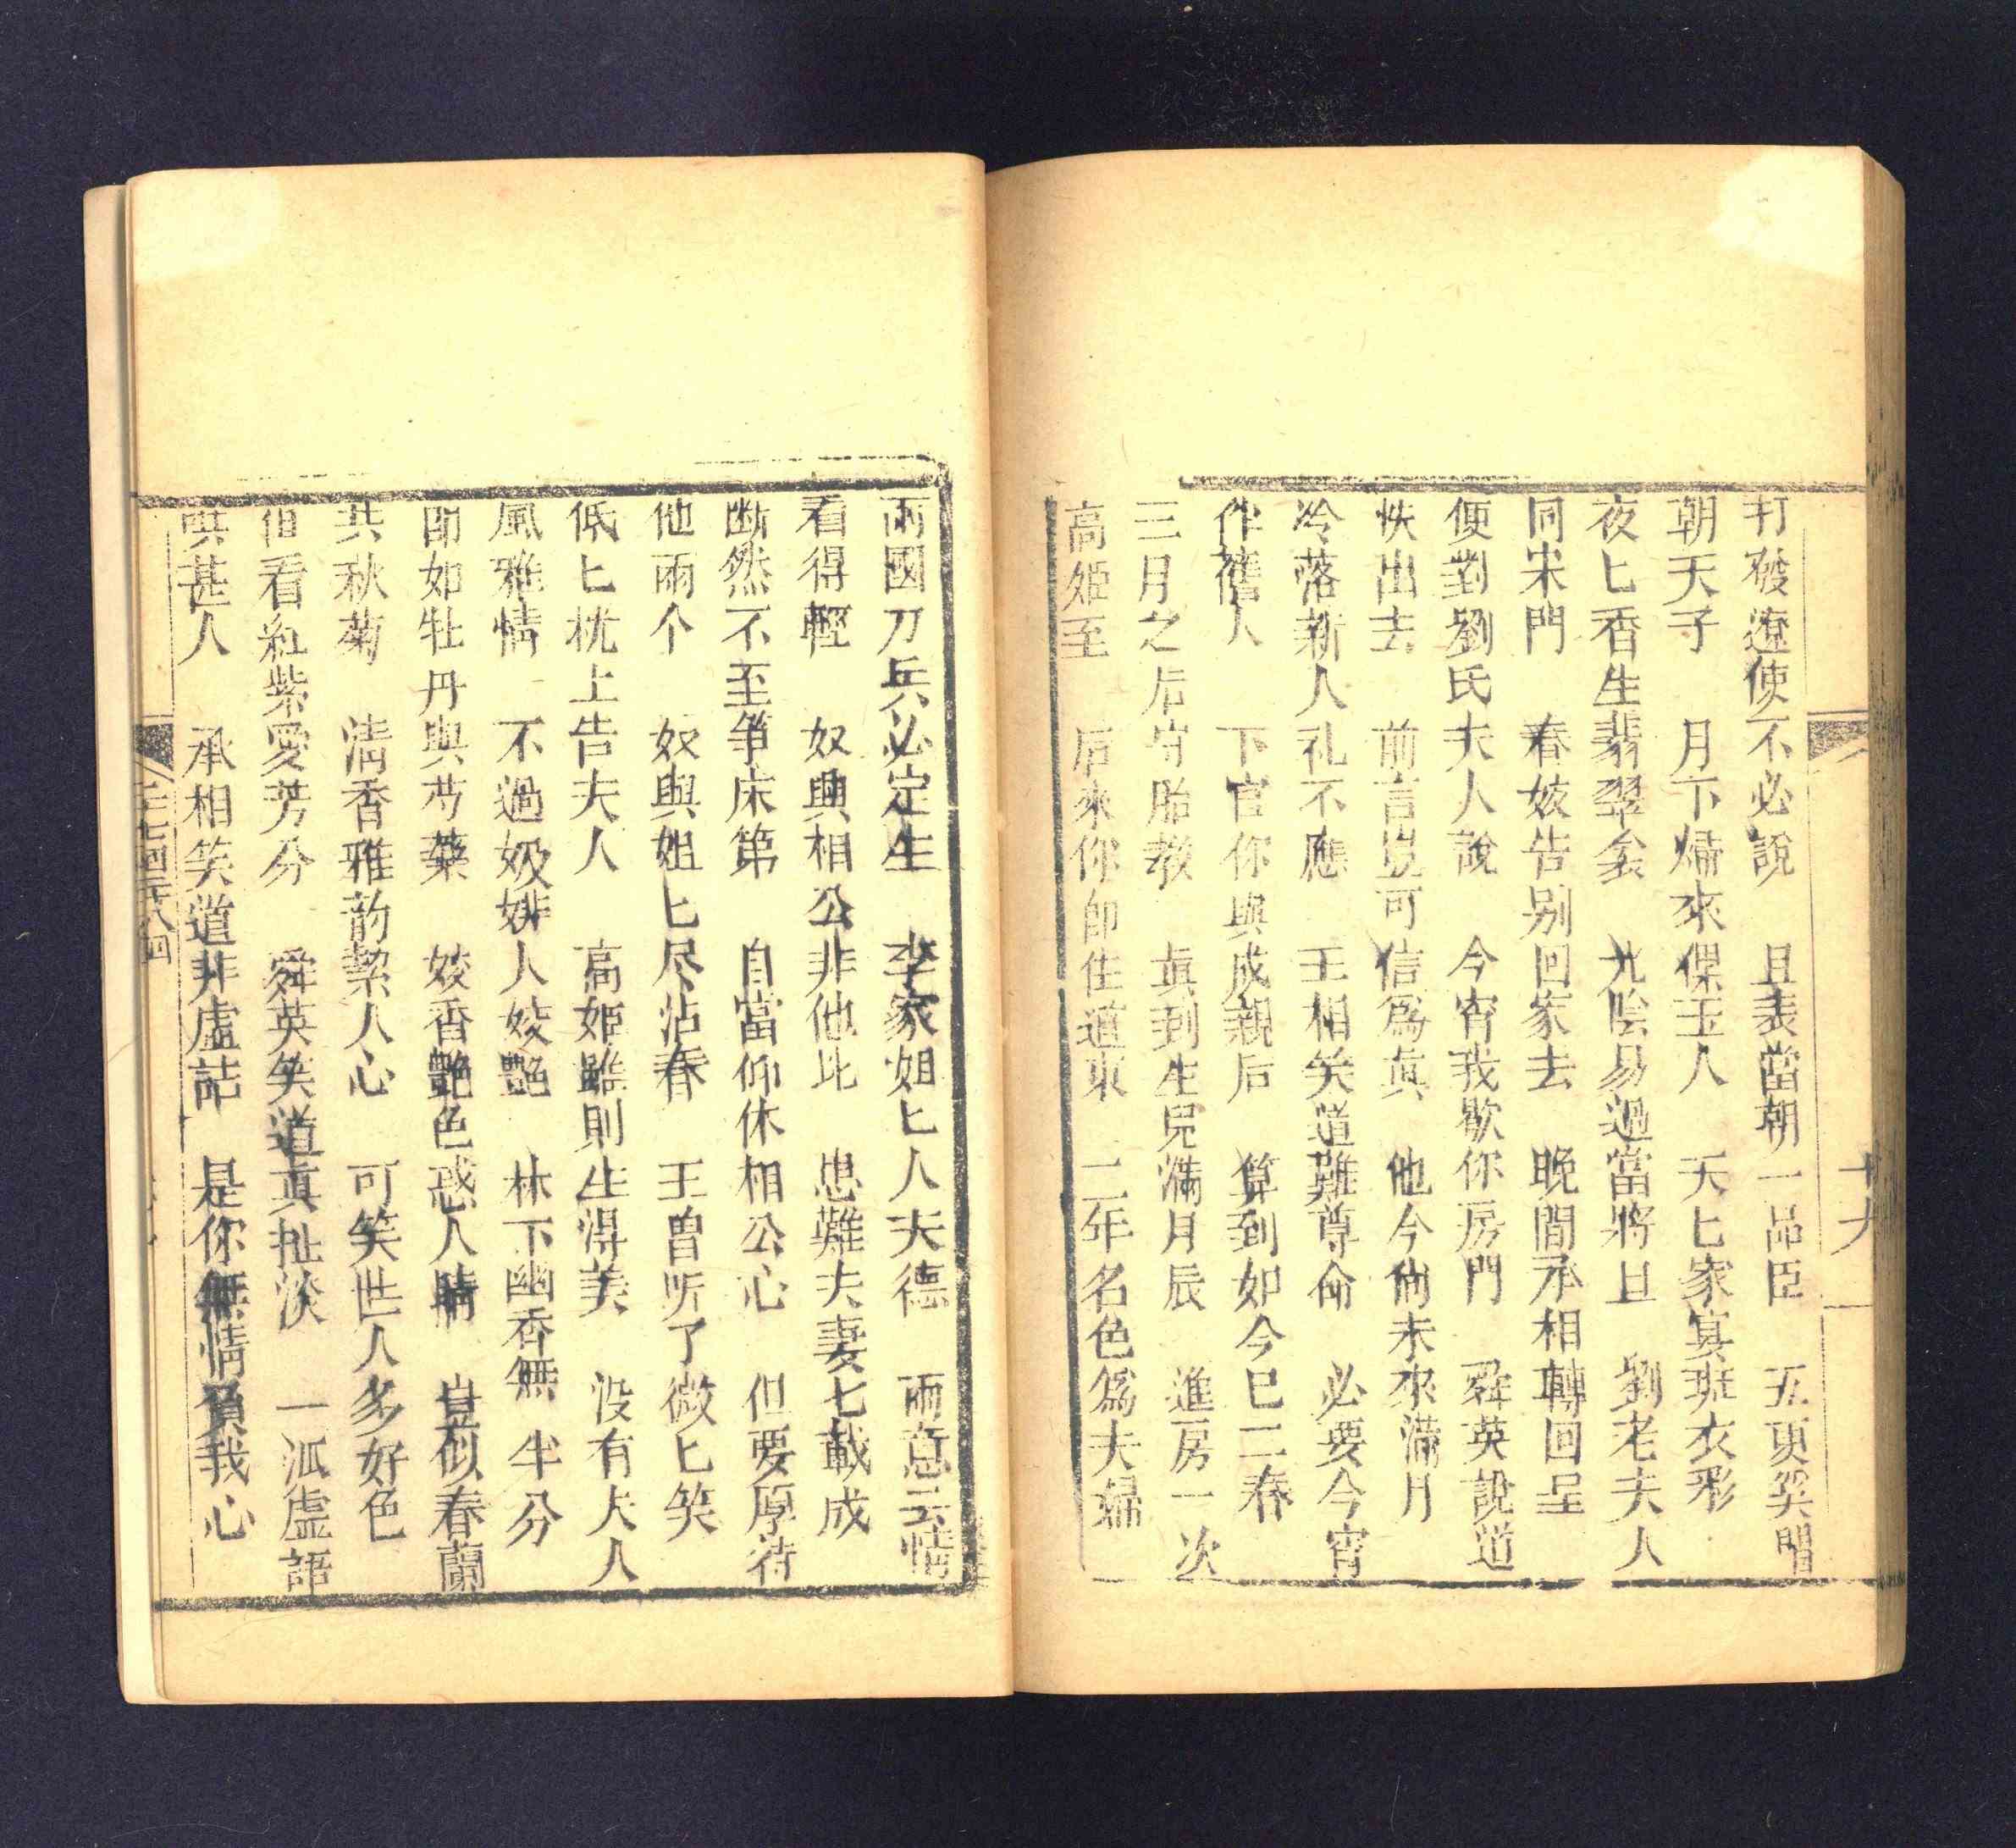 打破遼使不必說　且表當朝一品臣　五更笑唱
朝天子　月下歸來傑玉人　天匕家宴班衣彩
夜匕香生翡翠衾　光陰易過當將旦　劉老夫人
同宋門　春妓告别回家去　晚間丞相轉回呈
便對劉氏夫人說　今宵我歇你房門　舜英說道
怏出去　前言豈可信爲眞　他今尙未來滿月
冷落新人礼不應　王相笑道難尊命　必要今宵
伴舊人　下官你與成親后　算到如今已二春
三月之后守胎教　眞到生兒滿月辰　進房一次
高姬至　后來你卽住遠東　二年名色爲夫婦
十九
兩國刀兵必定生　李家姐匕人夫德　兩意三情
看得輕　奴與相公非他比　患難夫妻七載成
斷然不至爭床第　自當仰休相公心　但要厚待
他兩个　奴與姐匕尽沾春　王曾听了微匕笑
低匕枕上告夫人　高姬雖則生得美　没有大人
風雅情　不過奴婢人姣艷　林下幽香無半分
卽如牡丹與芍藥　姣香艷色惑人睛　豈似春蘭
共秋菊　清香雅韵繫人心　可笑世人多好色
但看紅紫愛芳分　舜英笑道眞扯淡　一派虛語
哄甚人　承相笑道非虛誌　是你無情負我心